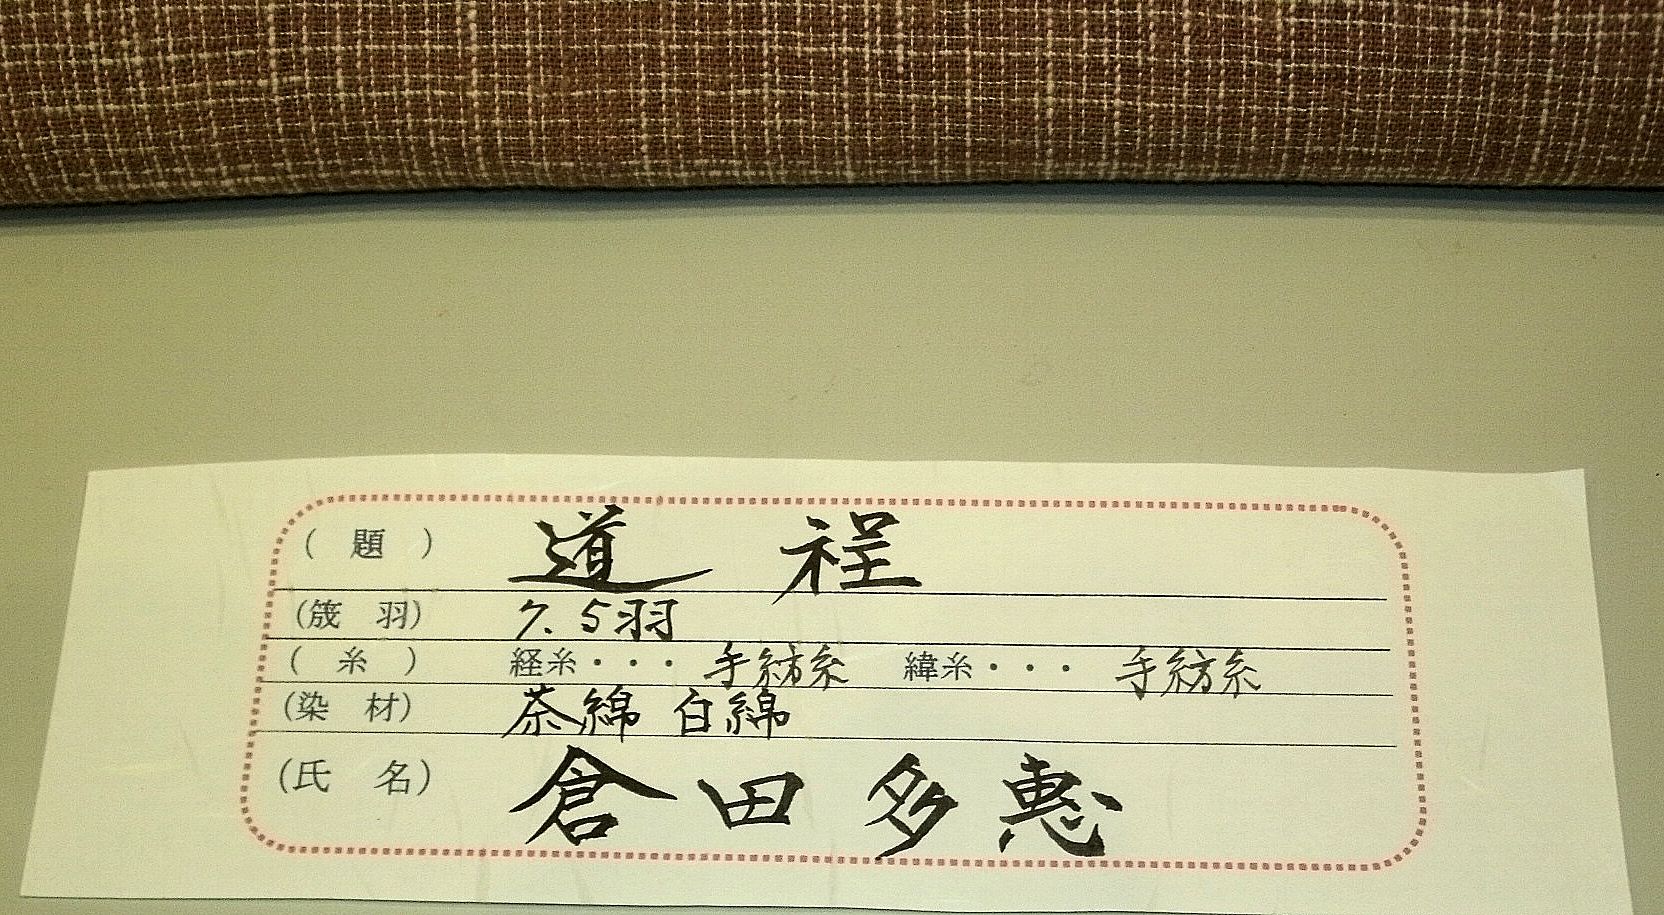 (題) 道程
(筬羽) 7.5羽
(糸) 経糸・・・手紡糸 緯糸・・・手紡糸
(染材) 茶綿 白綿
(氏名) 倉田多恵